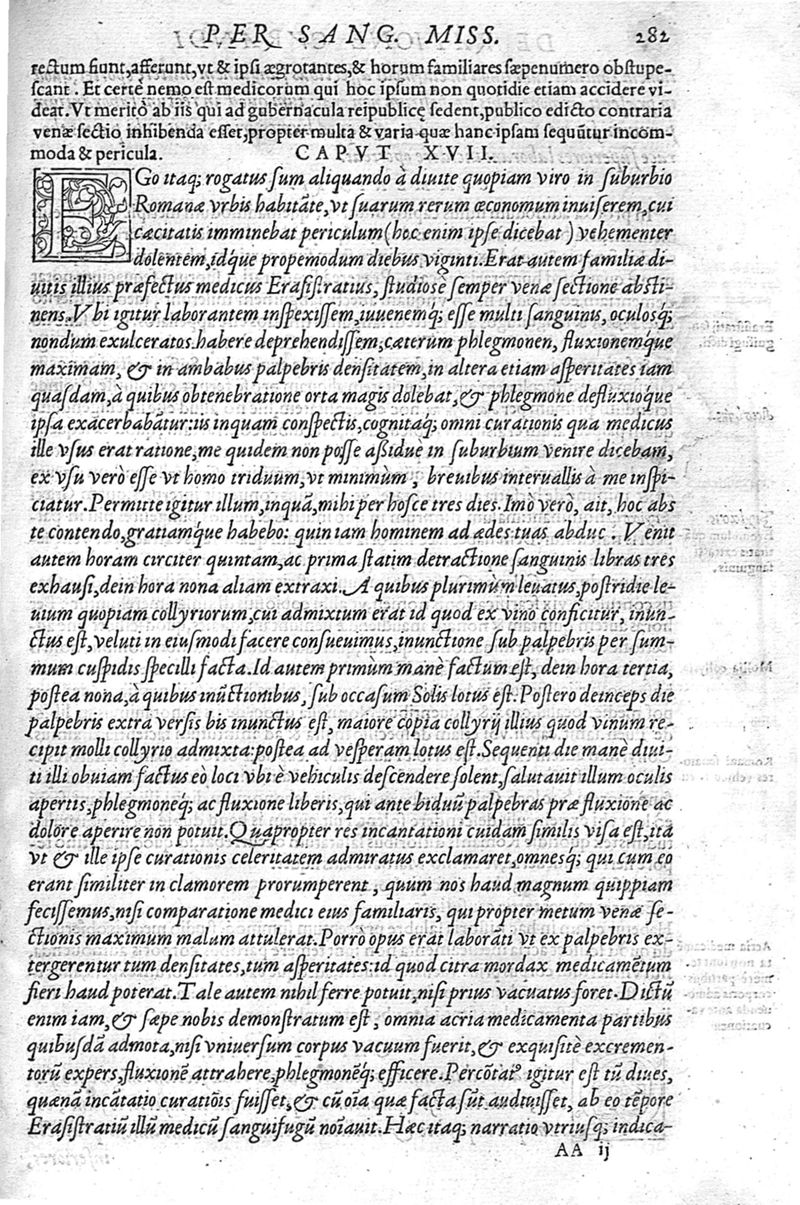 PER SANG. MISS. 282
rectum fiunt,afferunt,vt & ipsi ægrotantes,& horum familiares sæpenumero obstupe-
scant. Et certè nemo est medicorum qui hoc ipsum non quotidie etiam accidere vi-
deat. Vt meritò ab iis qui ad gubernacula reipublicę sedent,publico edicto contraria
venæ sectio inhibenda esset,propter multa & varia quæ hanc ipsam sequũtur incom-
moda & pericula. CAPVT XVII.
EGo itaq; rogatus sum aliquando à diuite quopiam viro in suburbio
Romanæ vrbis habitãte,vt suarum rerum œconomum inuiserem,cui
cæcitatis imminebat periculum (hoc enim ipse dicebat) vehementer
dolentem,idque propemodum diebus viginti. Erat autem familiæ di-
uitis illius præfectus medicus Erasistratius, studiosè semper venæ sectione absti-
nens. Vbi igitur laborantem inspexissem,iuuenemq; esse multi sanguinis, oculosq;
nondum exulceratos habere deprehendissem,cæterum phlegmonen, fluxionemque
maximam, & in ambabus palpebris densitatem,in altera etiam asperitates iam
quasdam,à quibus obtenebratione orta magis dolebat,& phlegmone defluxioque
ipsa exacerbabãtur:iis inquam conspectis,cognitaq; omni curationis qua medicus
ille vsus erat ratione,me quidem non posse assiduè in suburbium venire dicebam,
ex vsu verò esse vt homo triduum,vt minimùm, breuibus interuallis à me inspi-
ciatur. Permitte igitur illum,inquã,mihi per hosce tres dies. Imò verò, ait, hoc abs
te contendo,gratiamque habebo: quin iam hominem ad ædes tuas abduc. Venit
autem horam circiter quintam,ac prima statim detractione sanguinis libras tres
exhausi,dein hora nona aliam extraxi. A quibus plurimùm leuatus,postridie le-
uium quopiam collyriorum,cui admixtum erat id quod ex vino conficitur, inun-
ctus est,veluti in eiusmodi facere consueuimus,inunctione sub palpebris per sum-
mum cuspidis specilli facta. Id autem primùm manè factum est, dein hora tertia,
postea nona,à quibus inũctionibus, sub occasum Solis lotus est. Postero deinceps die
palpebris extra versis bis inunctus est, maiore copia collyrij illius quod vinum re-
cipit molli collyrio admixta:postea ad vesperam lotus est. Sequenti die manè diui-
ti illi obuiam factus eò loci vbi è vehiculis descendere solent,salutauit illum oculis
apertis,phlegmoneq; ac fluxione liberis,qui ante biduũ palpebras præ fluxione ac
dolore aperire non potuit. Quapropter res incantationi cuidam similis visa est,ita
vt & ille ipse curationis celeritatem admiratus exclamaret,omnesq; qui cum eo
erant similiter in clamorem prorumperent, quum nos haud magnum quippiam
fecissemus,nisi comparatione medici eius familiaris, qui propter metum venæ se-
ctionis maximum malum attulerat. Porrò opus erat laborãti vt ex palpebris ex-
tergerentur tum densitates,tum asperitates:id quod citra mordax medicamẽtum
fieri haud poterat. Tale autem nihil ferre potuit,nisi prius vacuatus foret. Dictũ
enim iam,& sæpe nobis demonstratum est, omnia acria medicamenta partibus
quibusdã admota,nisi vniuersum corpus vacuum fuerit,& exquisitè excremen-
torũ expers,fluxionẽ attrahere,phlegmonẽq; efficere. Percõtatꝰ igitur est tũ diues,
quænã incãtatio curatiõis fuisset,& cũ oĩa quæ facta sũt audiuisset, ab eo tẽpore
Erasistratiũ illũ medicũ sanguifugũ noĩauit. Hæc itaq; narratio vtriusq; indica-
AA ij